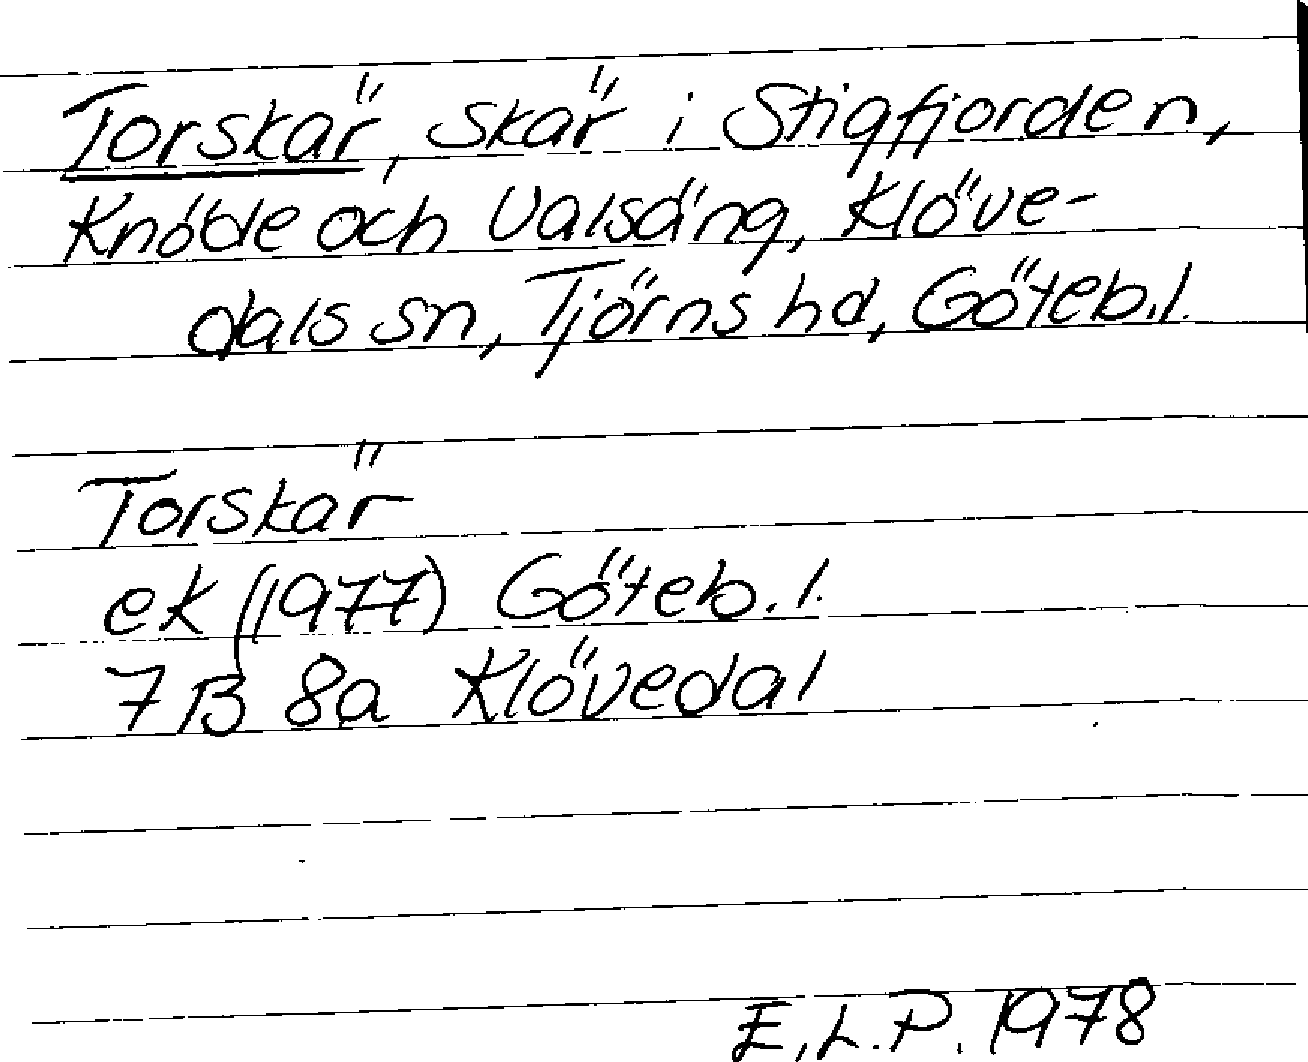 Torskär, skär i Stigfjorden,
Knöde och Valsäng, Klöve-
dals sn, Tjörns hd, Göteb.l.
Torskär
ek (1977) Göteb.l.
7B 8a Klövedal
E.L.P. 1978